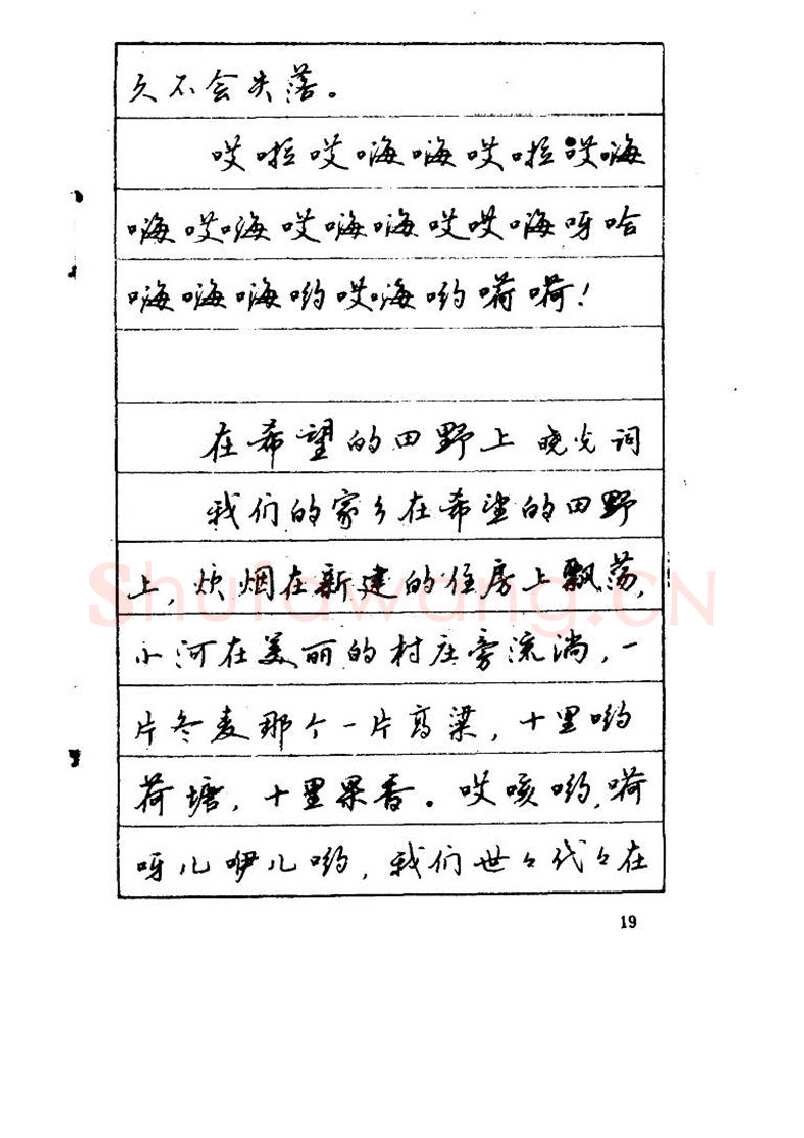 久不会失落。
哎啦哎嗨嗨哎啦哎嗨
嗨哎嗨哎嗨嗨哎哎嗨呀哈
嗨嗨嗨哟哎嗨哟嗬嗬！
在希望的田野上 晓光词
我们的家乡在希望的田野
上，炊烟在新建的住房上飘荡，
小河在美丽的村庄旁流淌，一
片冬麦那个一片高粱，十里哟
荷塘，十里果香。哎咳哟，嗬
呀儿咿儿哟，我们世々代々在
19
Shufawang.CN